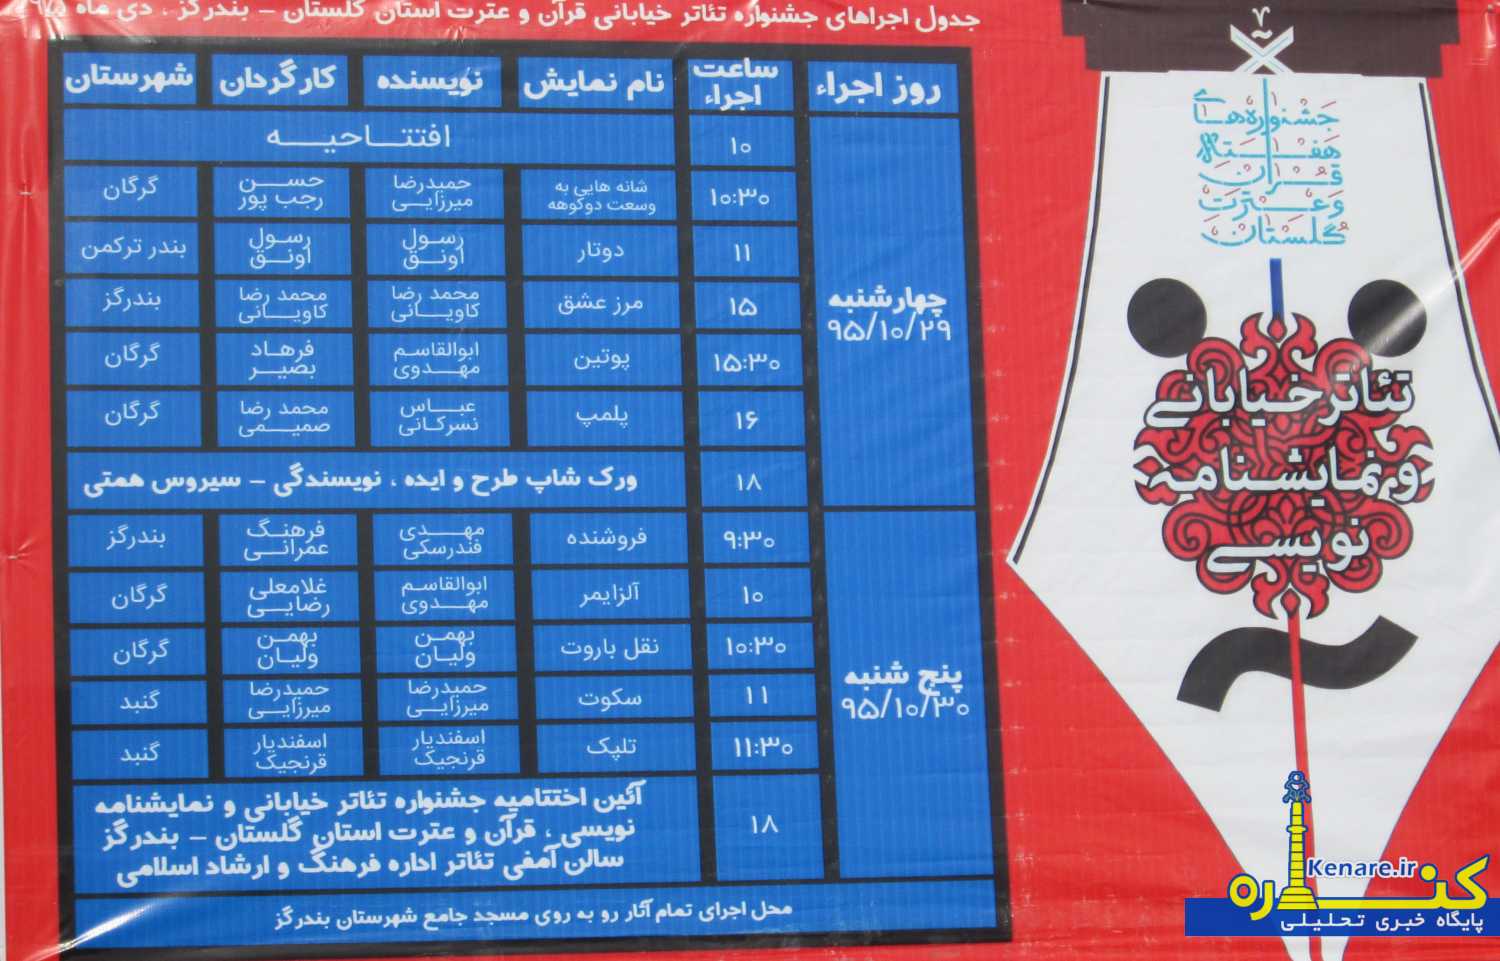 جدول اجراهای جشنواره تئاتر خیابانی قرآن و عترت استان گلستان - بندرگز ، دی ماه ۱۳۹۵
روز اجراء ساعت اجراء نام نمایش نویسنده کارگردان شهرستان
چهارشنبه ۹۵/۱۰/۲۹
۱۰ افتتاحیه
۱۰:۳۰ شانه هایی به وسعت دوکوهه حمیدرضا میرزایی حسن رجب پور گرگان
۱۱ دوتار رسول اونق رسول اونق بندر ترکمن
۱۵ مرز عشق محمد رضا کاویانی محمد رضا کاویانی بندرگز
۱۵:۳۰ پوتین ابوالقاسم مهدوی فرهاد بصیر گرگان
۱۶ پلمپ عباس نسرکانی محمد رضا صمیمی گرگان
۱۸ ورک شاپ طرح و ایده ، نویسندگی - سیروس همتی
پنج شنبه ۹۵/۱۰/۳۰
۹:۳۰ فروشنده مهدی فندرسکی فرهنگ عمرانی بندرگز
۱۰ آلزایمر ابوالقاسم مهدوی غلامعلی رضایی گرگان
۱۰:۳۰ نقل باروت بهمن ولیان بهمن ولیان گرگان
۱۱ سکوت حمیدرضا میرزایی حمیدرضا میرزایی گنبد
۱۱:۳۰ تلپک اسفندیار قرنجیک اسفندیار قرنجیک گنبد
۱۸ آئین اختتامیه جشنواره تئاتر خیابانی و نمایشنامه
نویسی ، قرآن و عترت استان گلستان - بندرگز
سالن آمفی تئاتر اداره فرهنگ و ارشاد اسلامی
محل اجرای تمام آثار رو به روی مسجد جامع شهرستان بندرگز
۷
جشنواره های
هفتگانه
قرآن
و عترت
گلستان
تئاتر خیابانی
و نمایشنامه
نویسی
Kenare.ir
کناره
پایگاه خبری تحلیلی